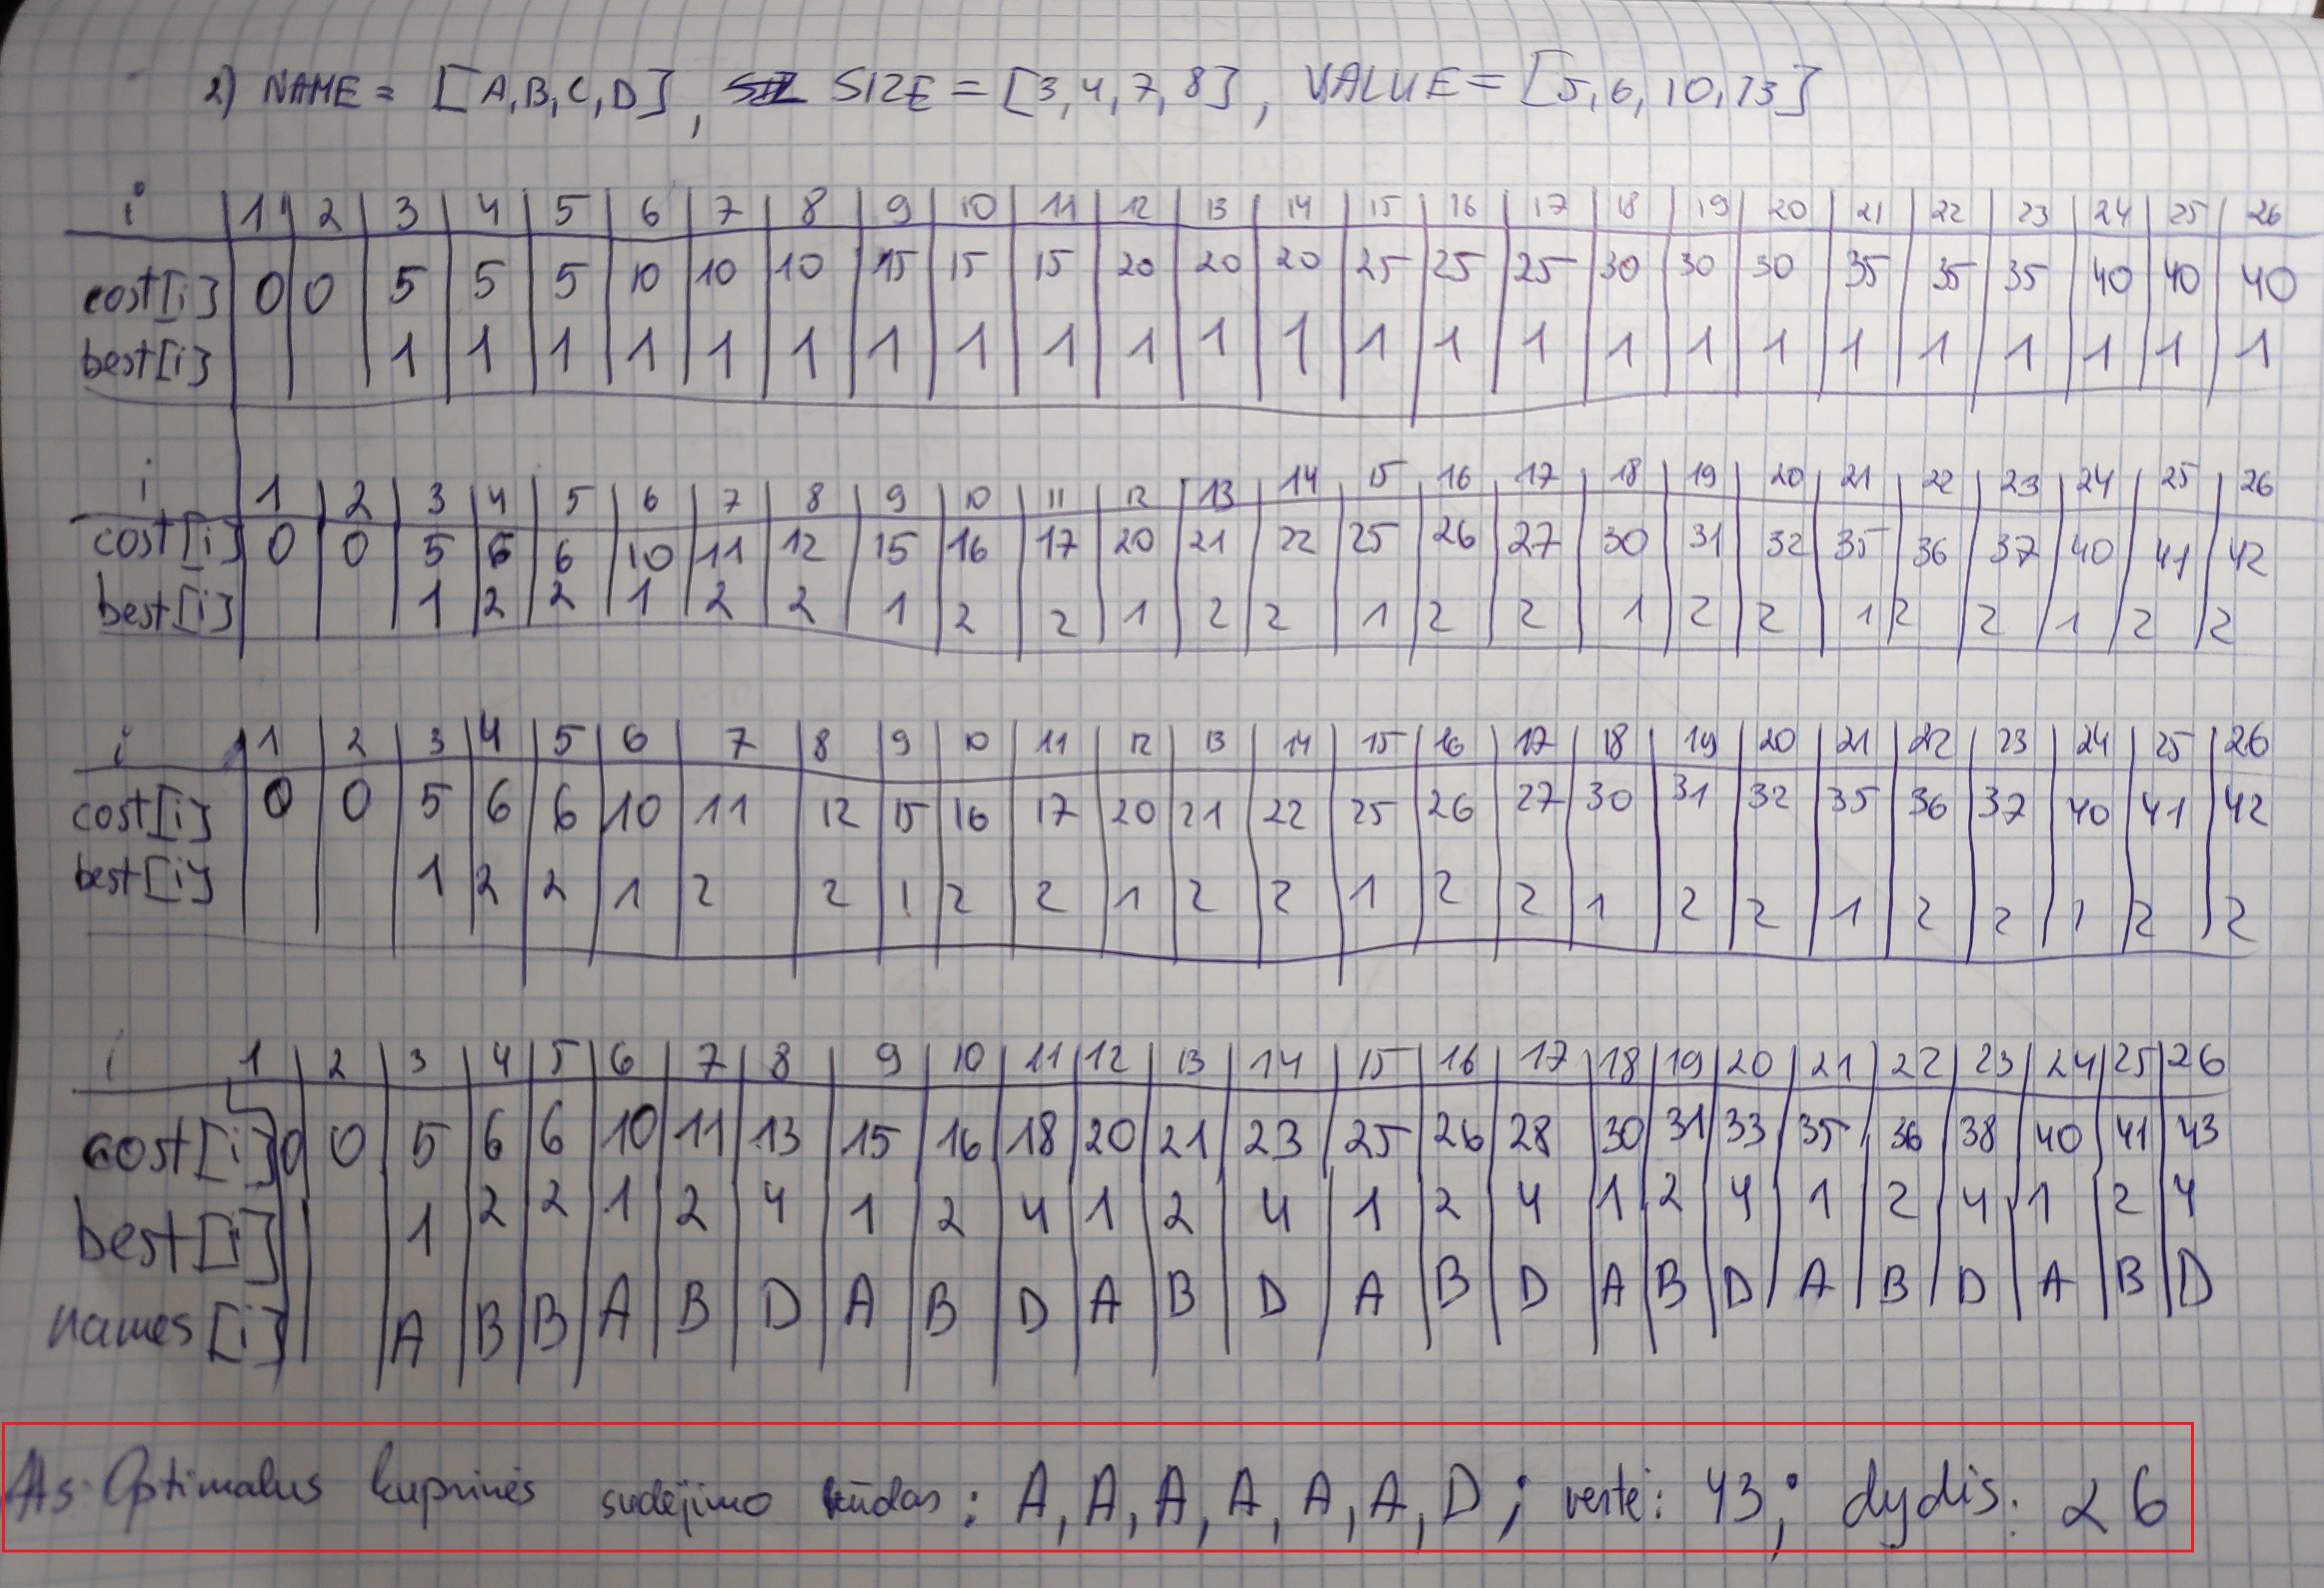 2) NAME = [A,B,C,D], SIZE = [3,4,7,8], VALUE = [5,6,10,13]
i 1 2 3 4 5 6 7 8 9 10 11 12 13 14 15 16 17 18 19 20 21 22 23 24 25 26
cost[i] 0 0 5 5 5 10 10 10 15 15 15 20 20 20 25 25 25 30 30 30 35 35 35 40 40 40
best[i] 1 1 1 1 1 1 1 1 1 1 1 1 1 1 1 1 1 1 1 1 1 1 1 1
i 1 2 3 4 5 6 7 8 9 10 11 12 13 14 15 16 17 18 19 20 21 22 23 24 25 26
cost[i] 0 0 5 6 6 10 11 12 15 16 17 20 21 22 25 26 27 30 31 32 35 36 37 40 41 42
best[i] 1 2 2 1 2 2 1 2 2 1 2 2 1 2 2 1 2 2 1 2 2 1 2 2
i 1 2 3 4 5 6 7 8 9 10 11 12 13 14 15 16 17 18 19 20 21 22 23 24 25 26
cost[i] 0 0 5 6 6 10 11 12 15 16 17 20 21 22 25 26 27 30 31 32 35 36 37 40 41 42
best[i] 1 2 2 1 2 2 1 2 2 1 2 2 1 2 2 1 2 2 1 2 2 1 2 2
i 1 2 3 4 5 6 7 8 9 10 11 12 13 14 15 16 17 18 19 20 21 22 23 24 25 26
cost[i] 0 0 5 6 6 10 11 13 15 16 18 20 21 23 25 26 28 30 31 33 35 36 38 40 41 43
best[i] 1 2 2 1 2 4 1 2 4 1 2 4 1 2 4 1 2 4 1 2 4 1 2 4
names[i] A B B A B D A B D A B D A B D A B D A B D A B D
Ats: Optimalus kuprinės sudėjimo būdas: A, A, A, A, A, A, D; vertė: 43; dydis: 26